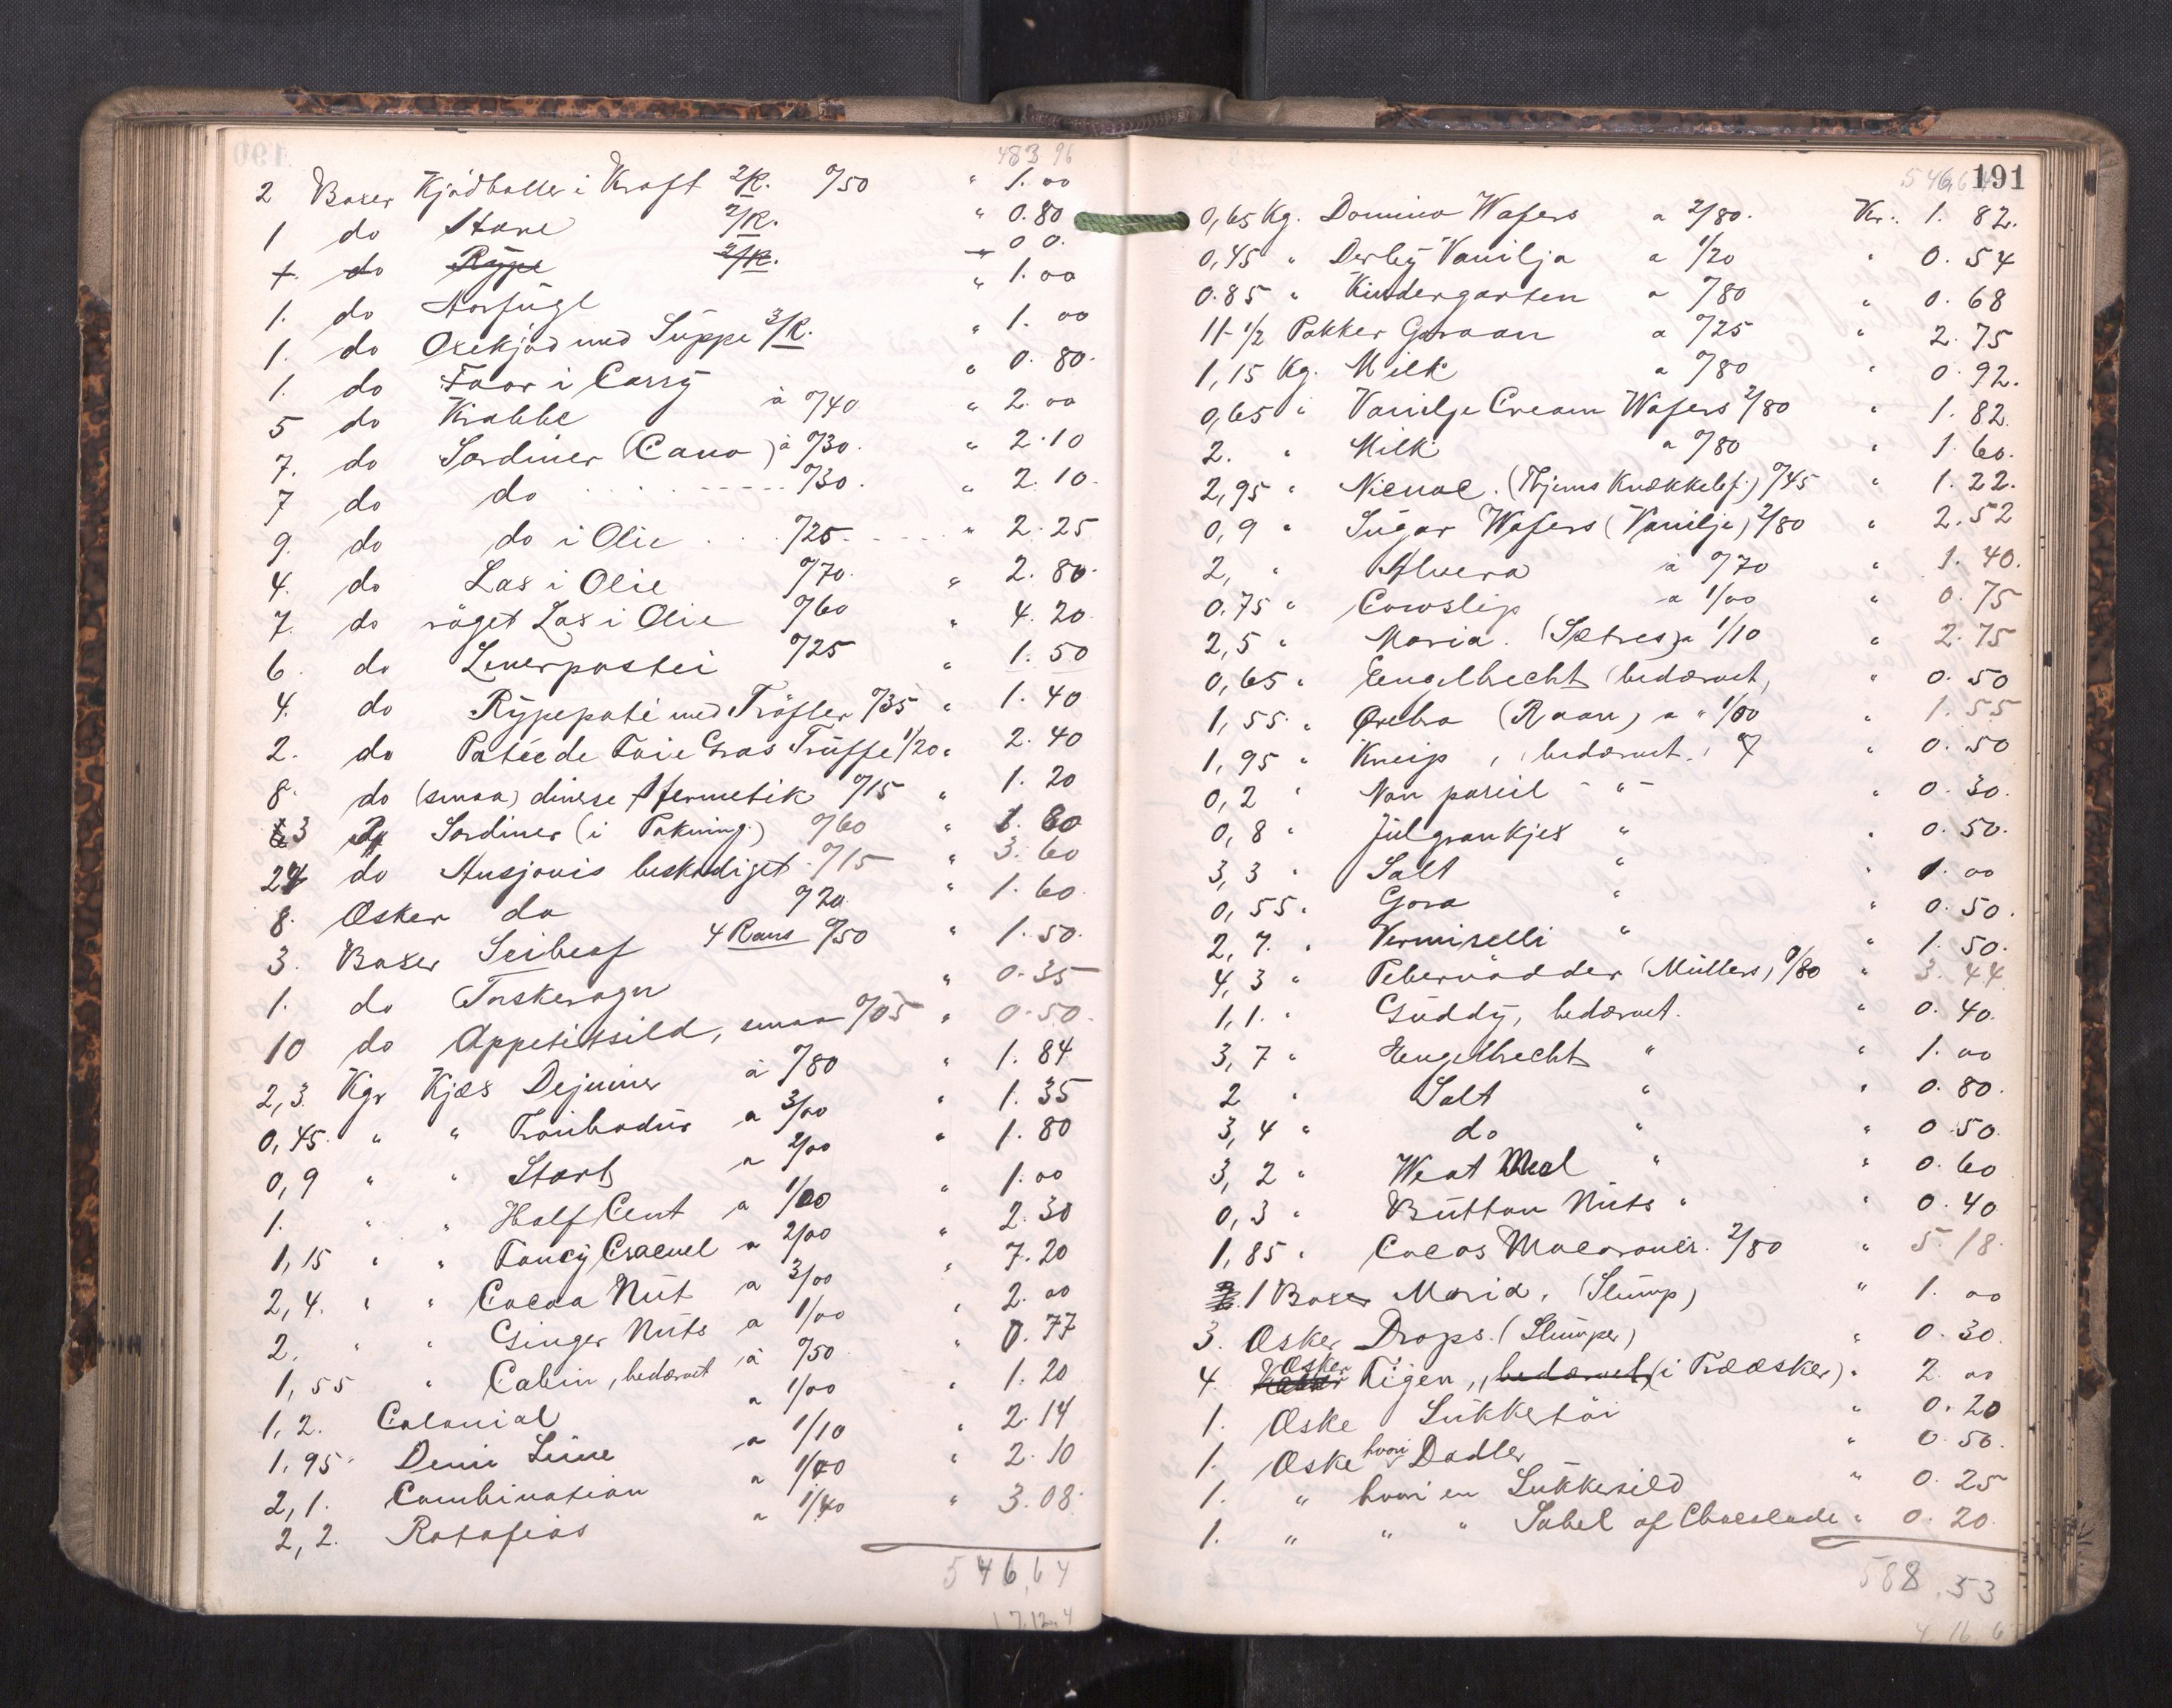 483 96
2 Boxer Kjödboller i Kraft 2/R. 0/50 " 1.00
1 do Hare 2/R. " 0.80
1 do Rype 2/R. " 00.
1. do Aarfugl " 1.00
1. do Oxekjöd med Suppe 3/R. " 1.00
1. do Faar i Carry " 0.80.
5 do Krabbe à 0/40 " 2.00
7. do Sardiner (Cano) à 0/30. " 2.10
7 do do 0/30. " 2.10.
9. do do i Olie 0/25. " 2.25
4. do Lax i Olie 0/70. " 2.80.
7. do röget Lax i Olie 0/60 " 4.20
6. do Leverpostei 0/25 " 1.50
4. do Rypepaté med Tröfler 0/35 " 1.40
2. do Patée de Foie Gras Trüffe 1/20 " 2.40
8. do (smaa) diverse Hermetik 0/15 " 1.20
3 Sardiner (i Pakning) 0/60 " 1.80
24 do Ansjovis beskadiget 0/15 " 3.60
8. Æsker do 0/20. " 1.60.
3. Boxer Seibeaf 4 Rans 0/50 " 1.50.
1. do Torskerogn " 0.35
10 do Appetitsild, smaa 0/05 " 0.50.
2,3. Kgr Kjæs Dejuner à 0/80 " 1.84
0,45. " " Troubadur a 3/00 " 1.35
0,9 " " Start a 2/00 " 1.80
1. " " Half Cent a 1/00 " 1.00
1,15 " " Fancy Cracnel a 2/00 " 2.30
2,4. " " Cocoa Nut a 3/00 " 7.20
2. " " Ginger Nuts a 1/00 " 2.00
1,55 " Cabin, bedærvet à 0/50 " 0.77
1,2. Colonial a 1/00 " 1.20
1,95 Demi Lune a 1/10 " 2.14
2,1. Combination a 1/00 " 2.10
2,2. Ratafias a 1/40 " 3.08.
546,64
17.12.4
546,64
191
0,65 Kg. Domino Wafers a 2/80. Kr. 1.82.
0,45 " Derby Vanilja a 1/20 " 0.54
0.85 " Kindergarten a 0/80 " 0.68
11-1/2 Pakker Goraan a 0/25 " 2.75
1,15 Kg. Milk a 0/80 " 0.92.
0,65 " Vanilje Cream Wafers 2/80 " 1.82
2. " Milk a 0/80 " 1.60.
2,95 " Nicnac. 0/45 " 1.22.
0,9 " Sugar Wafers (Vanilje) 2/80 " 2.52
2, " Alvera à 0/70 " 1.40.
0.75 " Cowslip a 1/00 " 0.75
2,5 " Maria. (Sætres) a 1/10 " 2.75
0,65 " Engelbrecht (bedærvet) " 0.50
1,55 " Örebro a 1/00 " 1.55
1,95 " Kneip, bedærvet. " 0.50
0,2 " Non pareil - " - " 0.30.
0,8 " Julgrankjex " " 0.50.
3,3 " Salt " " 1.00
0,55 " Gora " " 0.50.
2,7. " Vermiselli " " 1.50.
4,3 " Pebernödder (Müllers) 0/80 " 3.44
1,1. " Guddy, bedærvet. " 0.40.
3,7 " Engelbrecht " " 1.00
2 " Salt " " 0.80.
3,4 " do " " 0.50.
3,2 " Weat Meal " " 0.60
0,3 " Button Nuts " " 0.40
1,85 " Cocos Macaroner. 2/80 " 5.18.
1 Boxer Maria. (Slump) " 1.00
3. Æsker Drops. (Slumper) " 0.30
4. Æsker Figen, bedærvet, (i Trææsker) " 2.00
1. Æske Sukkertöi " 0.20
1. Æske hvori Dadler " 0.50.
1. " hvori en Sukkersild " 0.25
1. " " " Sabel af Chocolade " 0.20
588,53
4 16 6